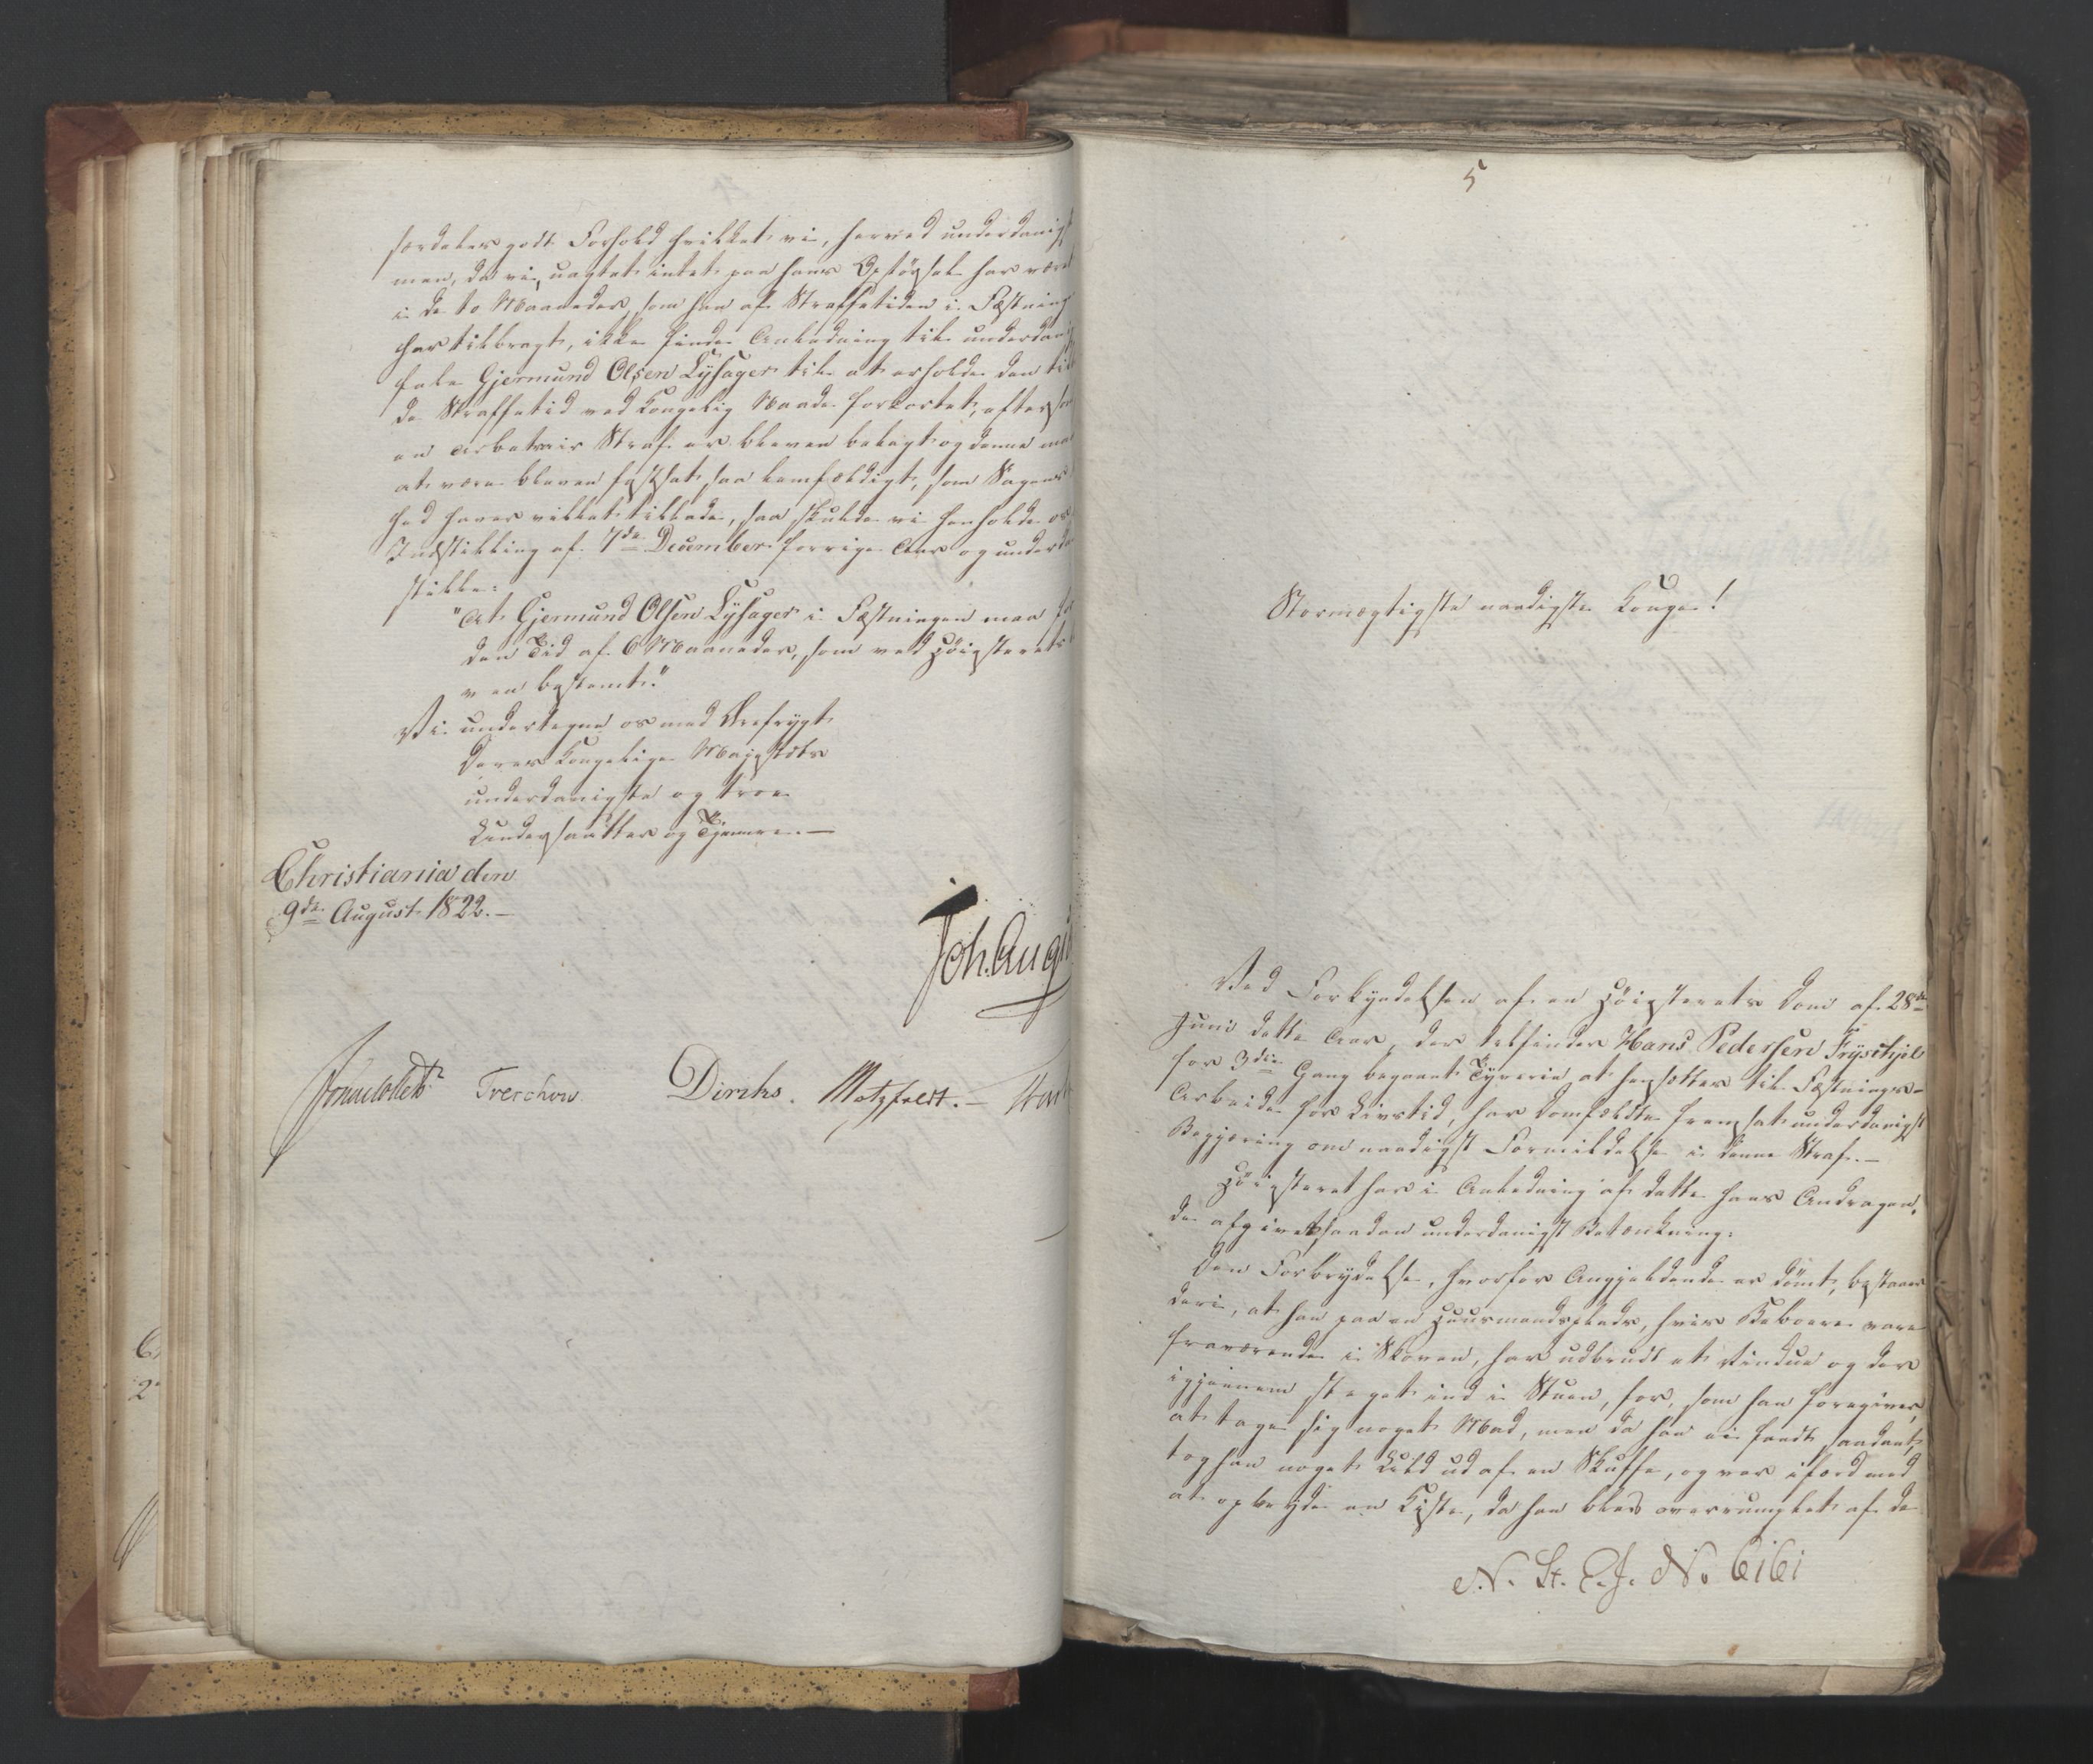 særdeles godt Forhold hvilket vi, herved underdanigst
men, da vi, uagtet intet paa hans Opførsel har været
i de to Maaneder, som han af Straffetiden i Fæstning
har tilbragt, ikke finde Anledning til underdanig
fale Gjermund Olsen Lysager til at erholde den til
de Straffetid ved Kongelig Naade forkortet, eftersom
en arbitrair Straf er bleven belagt og denne maa
at være bleven fastsat saa lemfældigt, som Sagens
hed haver villet tillade, saa skulde vi henholde os
Indstilling af 7de December forrige Aar og underda
stille:
"At Gjermund Olsen Lysager i Fæstningen maa
den Tid af 6 Maaneder, som ved Høiesterets
ven bestemt."
Vi undertegne os med Ærefrygt
Deres Kongelige Majestæts
underdanigste og troe
Undersaatter og Tjenere.—
Christiania den
9de August 1822.—
Joh. Aug
Jonas Collett Treschow Diriks. Motzfeldt.—
5
Stormægtigste naadigste Konge!
Ved Forkyndelsen af en Høiesterets Dom af 28de
Juni dette Aar, der tilfinder Hans Pedersen Frysthjel
for 3die Gang begaaet Tyverie at hensættes til Fæstnings-
Arbeide for Livstid, har Domfældte fremsat underdanigst
Begjæring om naadigst Formildelse i denne Straf.—
Høiesteret har i Anledning af dette hans Andragen-
de afgivet saadan underdanigst Betænkning:
Den Forbrydelse, hvorfor Angjeldende er dømt, bestaaer
deri, at han paa en Huusmandsplads, hvis Beboere vare
fraværende i Skoven, har udbrudt et Vindue og der
igjennem steget ind i Stuen, for, som han foregiver,
at tage sig noget Mad, men da han ei fandt saadant,
tog han noget Uld ud af en Skuffe, og var ifærd med
at opbryde en Kiste, da han blev overrumplet af de
N. St. E. J. No 6161